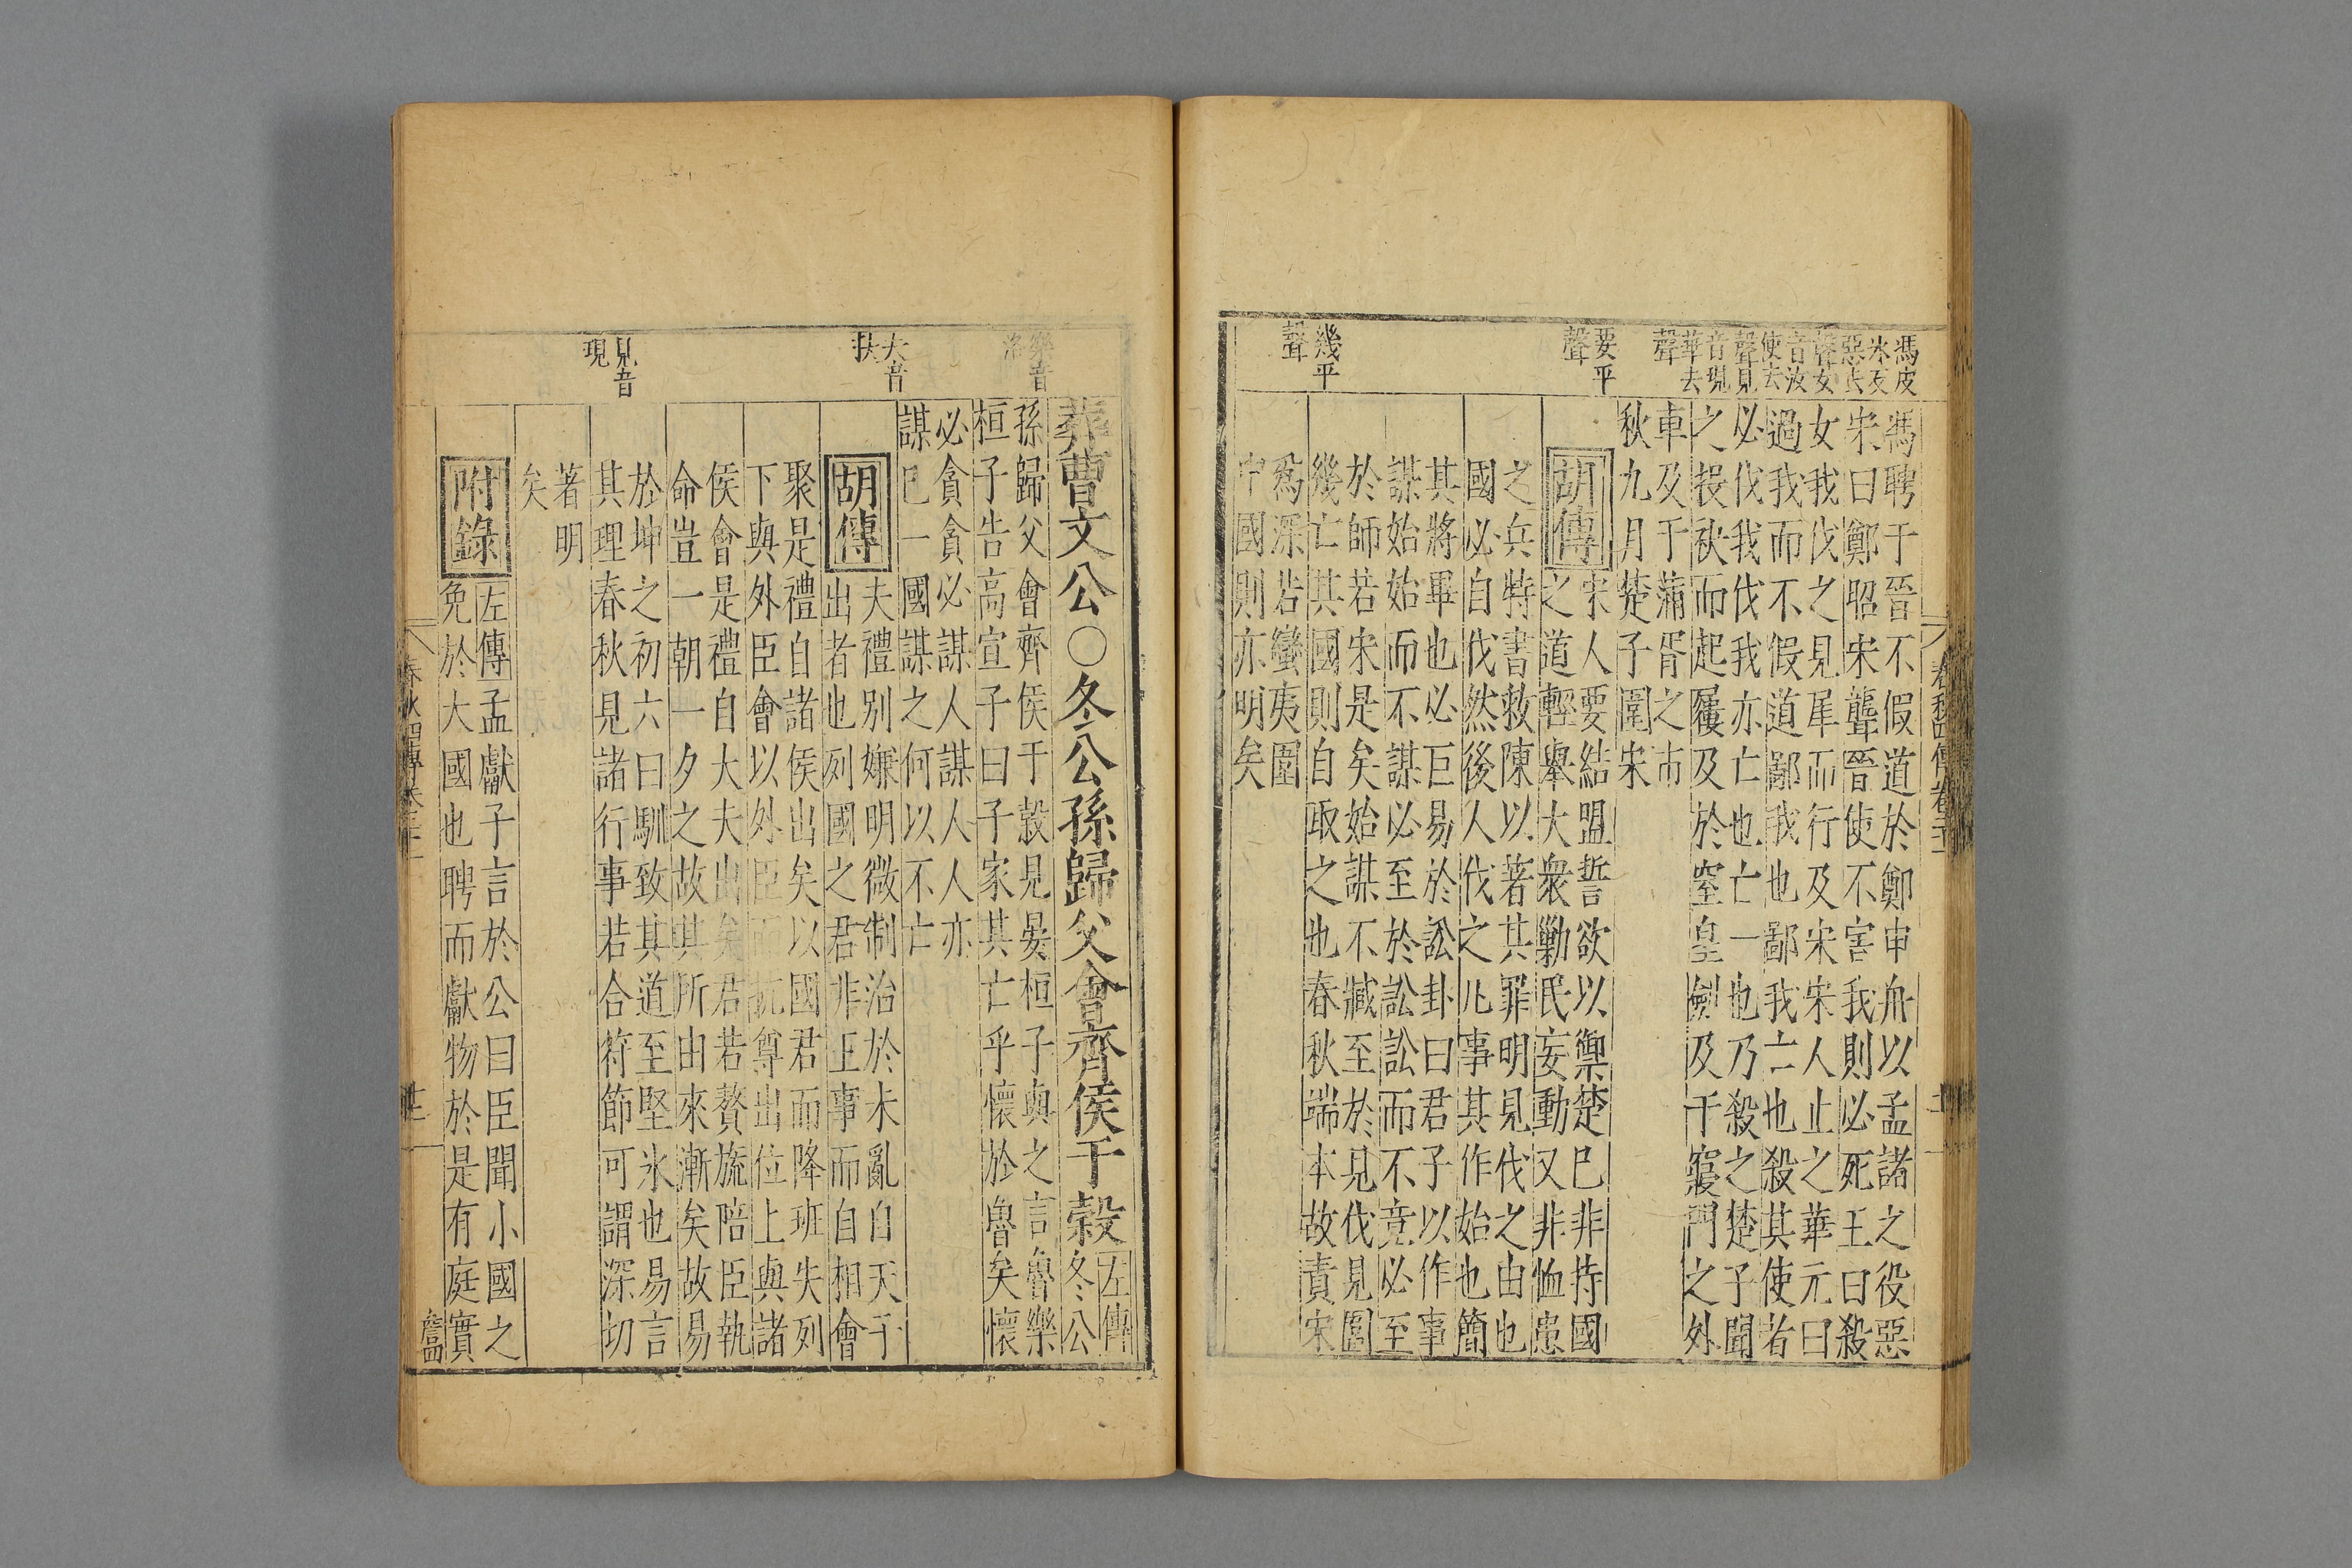 春秋四傳卷二十一
馮皮
冰反
惡去
聲女
音汝
使去
聲見
音現
華去
聲
要平
聲
幾平
聲
馮聘于晉不假道於鄭申舟以孟諸之役惡
宋曰鄭昭宋聾晉使不害我則必死王曰殺
女我伐之見犀而行及宋宋人止之華元曰
過我而不假道鄙我也鄙我亡也殺其使者
必伐我伐我亦亡也亡一也乃殺之楚子聞
之投袂而起屨及於窒皇劍及于寢門之外
車及于蒲胥之市
秋九月楚子圍宋
胡傳
宋人要結盟誓欲以禦楚已非持國
之道輕舉大衆勦民妄動又非恤患
之兵特書救陳以著其罪明見伐之由也
國必自伐然後人伐之凡事其作始也簡
其將畢也必巨易於訟卦曰君子以作事
謀始始而不謀必至於訟訟而不竟必至
於師若宋是矣始謀不臧至於見伐見圍
幾亡其國則自取之也春秋端本故責宋
爲深若蠻夷圍
中國則亦明矣
樂音
洛
夫音
扶
見音
現
葬曹文公○冬公孫歸父會齊侯于穀
左傳
冬公
孫歸父會齊侯于穀見晏桓子與之言魯樂
桓子告高宣子曰子家其亡乎懷於魯矣懷
必貪貪必謀人謀人人亦
謀已一國謀之何以不亡
胡傳
夫禮別嫌明微制治於未亂自天子
出者也列國之君非王事而自相會
聚是禮自諸侯出矣以國君而降班失列
下與外臣會以外臣而抗尊出位上與諸
侯會是禮自大夫出矣君若贅旒陪臣執
命豈一朝一夕之故其所由來漸矣故易
於坤之初六曰馴致其道至堅氷也易言
其理春秋見諸行事若合符節可謂深切
著明
矣
附錄
左傳孟獻子言於公曰臣聞小國之
免於大國也聘而獻物於是有庭實